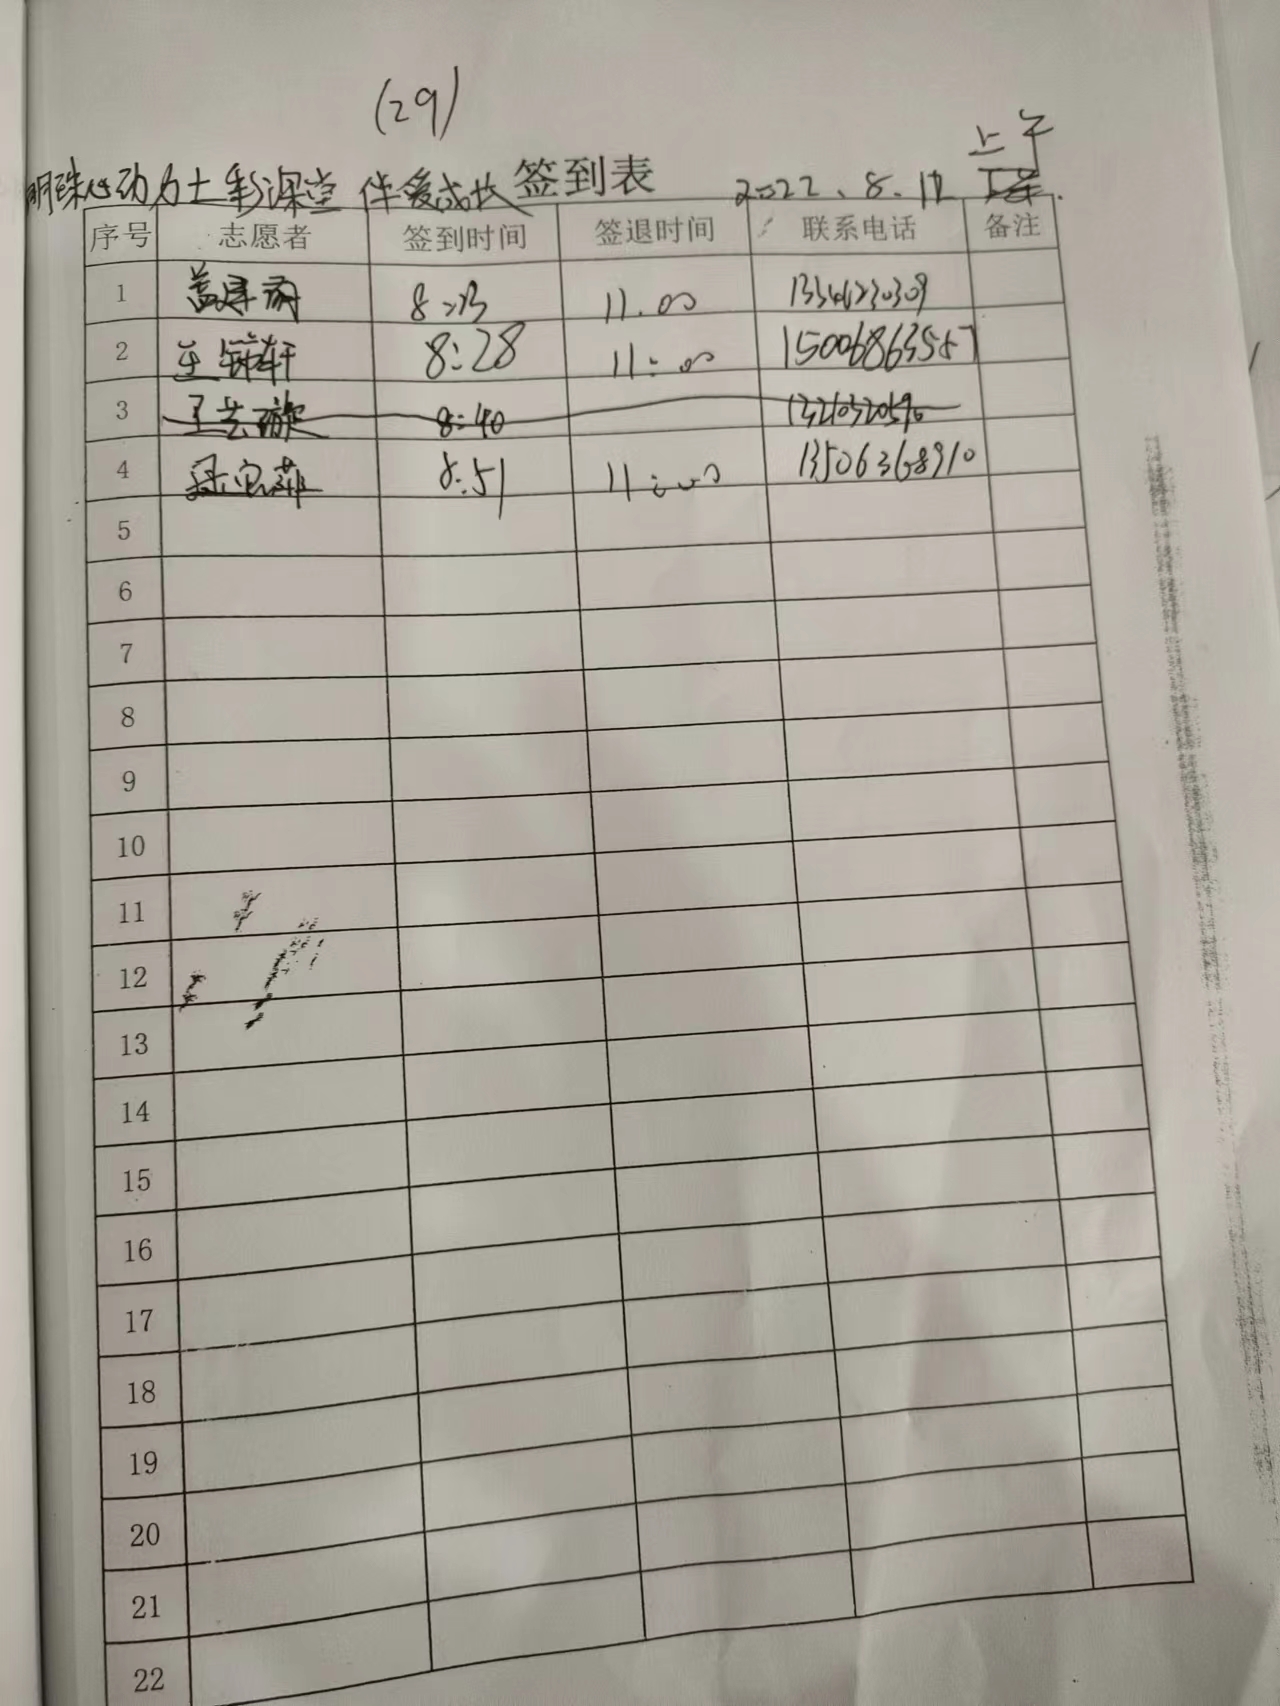 (29)
上午
明珠心动力七彩课堂 伴爱成长 签到表 2022.8.12
序号 志愿者 签到时间 签退时间 联系电话 备注
1 11.00
2 轩 8:28 11:00 15006863587
3 王艺璇 8:40
4 8:51 11:00 13506368910
5
6
7
8
9
10
11
12
13
14
15
16
17
18
19
20
21
22